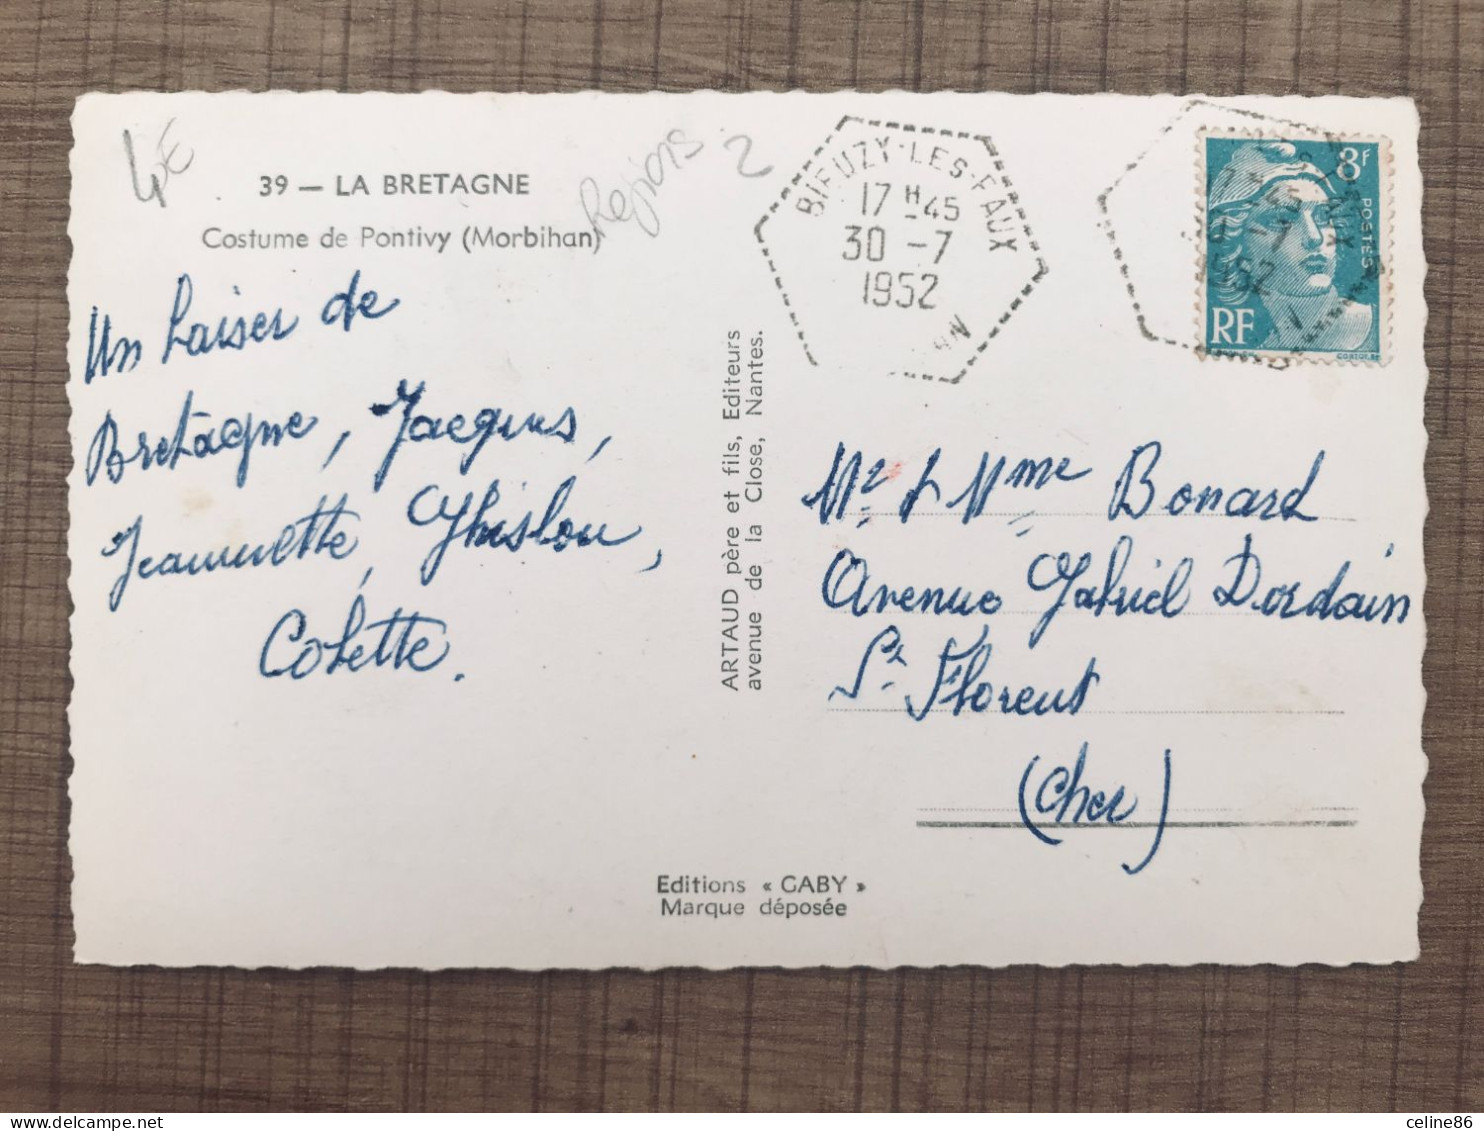 4€
Regions 2
39 — LA BRETAGNE
Costume de Pontivy (Morbihan)
Un baiser de
Bretagne, Jacques,
Jeannette, Ghislou,
Colette.
ARTAUD père et fils, Editeurs
avenue de la Close, Nantes.
BIEUZY-LES-EAUX
17 H 45
30 -7
1952
8f
POSTES
RF
17 45
1952
Mr & Mme Bonard
Avenue Gabriel Dordain
St Florent
(Cher)
Editions « GABY »
Marque déposée
celine86